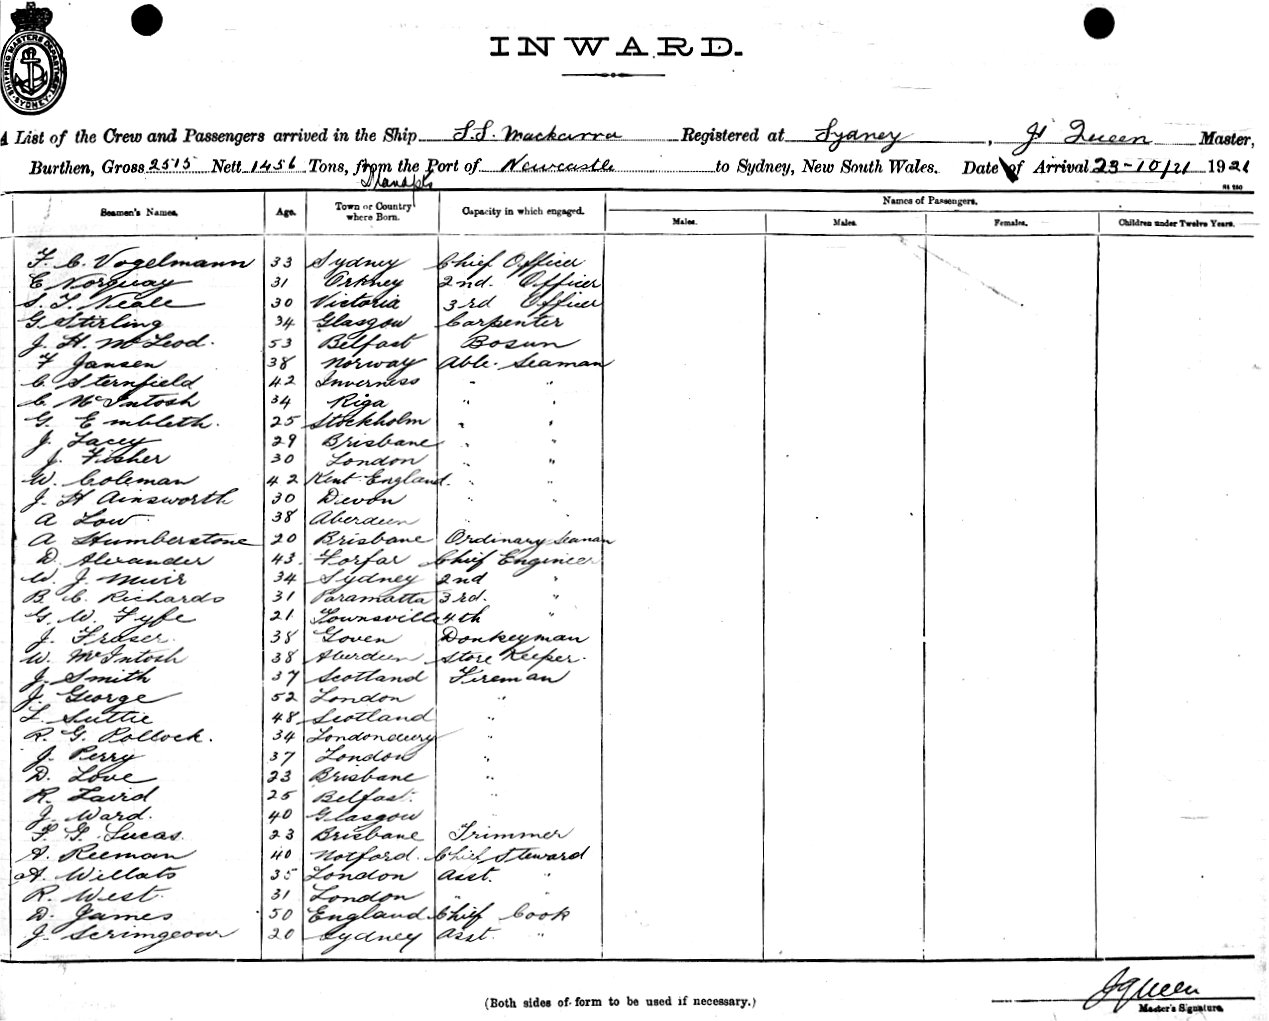 SHIPPING MASTERS DEPARTMENT SYDNEY
INWARD.
A List of the Crew and Passengers arrived in the Ship S.S. Mackarra Registered at Sydney, J Queen Master,
Burthen, Gross 2515 Nett 1456 Tons, from the Port of Newcastle to Sydney, New South Wales. Date of Arrival 23-10/21 1921
Seamen's Names. Age. Town or Country where Born. Capacity in which engaged. Names of Passengers.
Males. Males. Females. Children under Twelve Years.
F. C. Vogelmann 33 Sydney Chief Officer
E Norquay 31 Orkney 2nd. Officer
S. T. Neale 30 Victoria 3rd Officer
G Stirling 34 Glasgow Carpenter
J. H. McLeod. 53 Belfast Bosun
F Jansen 38 Norway Able Seaman
C. Sternfield 42 Inverness " "
C. McIntosh 34 Riga " "
G. Embleth. 25 Stockholm " "
J. Lacey 29 Brisbane " "
J. Fisher 30 London " "
W. Coleman 42 Kent England. " "
J. H Ainsworth 30 Devon " "
A Low 38 Aberdeen " "
A Humberstone 20 Brisbane Ordinary Seaman
D. Alexander 43. Forfar Chief Engineer
W. J. Muir 34 Sydney 2nd "
B. C. Richards 31 Paramatta 3rd. "
G. W. Fyfe 21 Townsville 4th "
J. Fraser. 38 Goven Donkeyman
W. McIntosh 38 Aberdeen Store Keeper.
J. Smith 37 Scotland Fireman
J. George 52 London "
L. Suttie 48 Scotland "
R. G. Pollock. 34 Londondery "
J. Perry 37 London "
D. Love 23 Brisbane "
R. Laird 25 Belfast. "
J. Ward. 40 Glasgow
F. G. Lucas. 23 Brisbane Trimmer
A. Reeman 40 Notford. Chief Steward
A. Willats 35 London Asst. "
R. West. 31 London " "
D. James 50 England Chief Cook
J. Scrimgeour 20 Sydney Asst. "
J Queen
Master's Signature.
(Both sides of form to be used if necessary.)